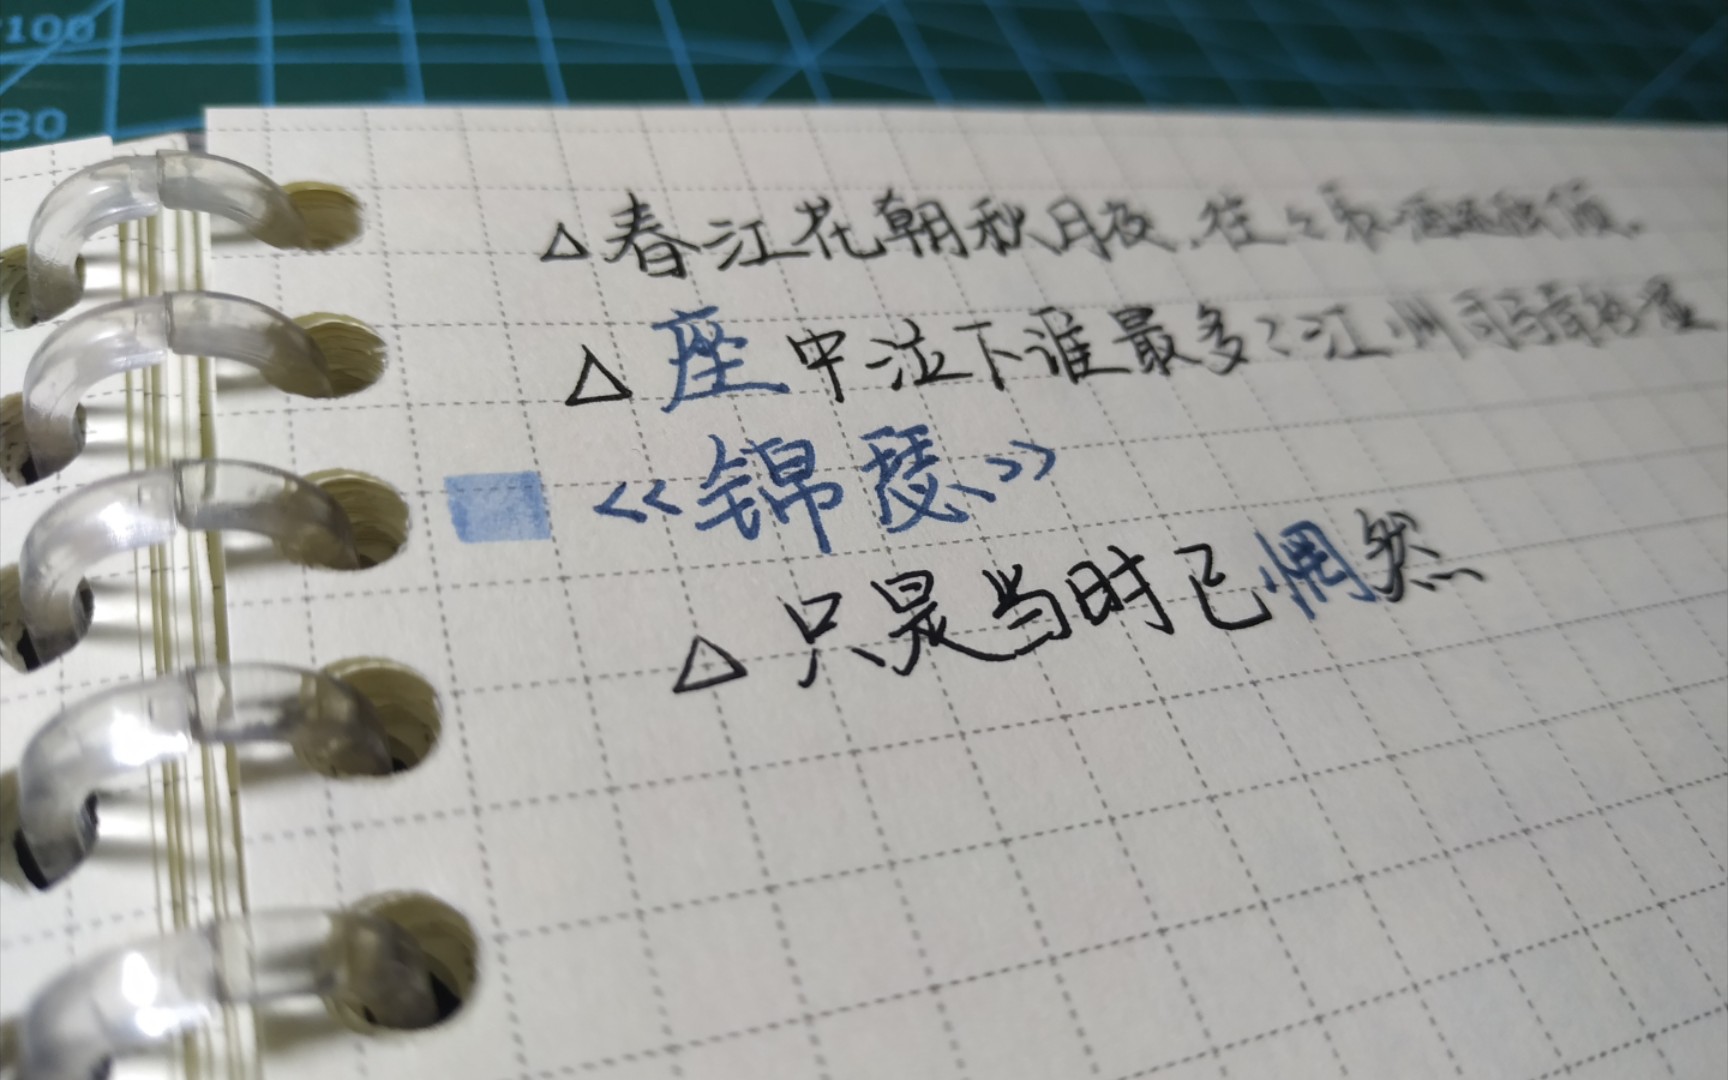 100
80
△春江花朝秋月夜,往々取酒还独倾。
△座中泣下谁最多?江州司马青衫湿
《锦瑟》
△只是当时已惘然